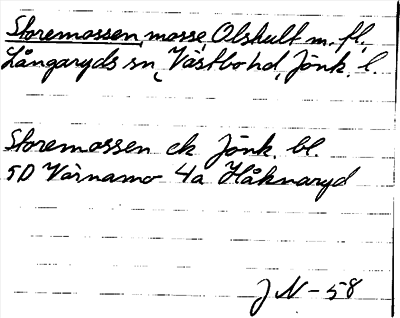 Storemossen, mosse, Olskult m. fl.,
Långaryds sn, Västbo hd, Jönk. l.
Storemossen ek Jönk. bl.
5D Värnamo 4a Håknaryd
J N - 58